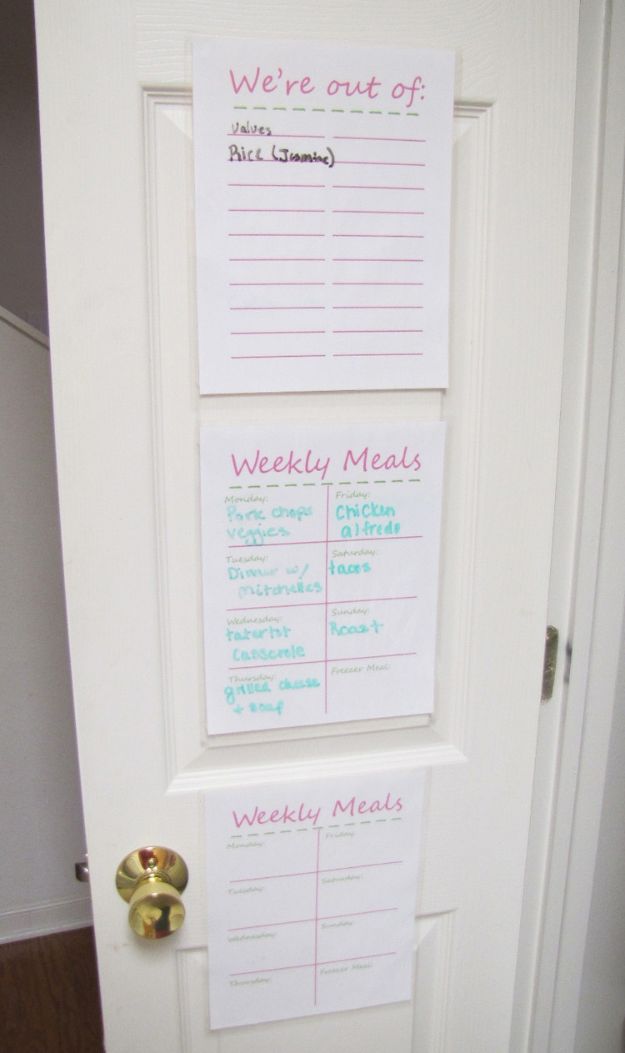 We're out of:
Values
Rice (Jasmine)
Weekly Meals
Monday:
Pork chops
veggies
Tuesday:
Dinner w/
mitchelles
Wednesday:
tatertot
casserole
Thursday:
grilled cheese
+ soup
Friday:
Chicken
alfredo
Saturday:
tacos
Sunday:
Roast
Freezer Meal:
Weekly Meals
Monday:
Tuesday:
Wednesday:
Thursday:
Friday:
Saturday:
Sunday:
Freezer Meal: